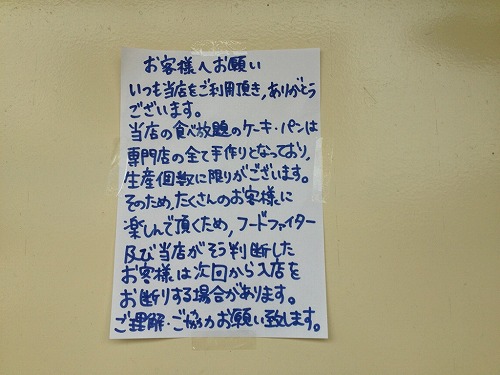 お客様へお願い
いつも当店をご利用頂き,ありがとう
ございます。
当店の食べ放題のケーキ・パンは
専門店の全て手作りとなっており,
生産個数に限りがございます。
そのため,たくさんのお客様に
楽しんで頂くため,フードファイター
及び当店がそう判断した
お客様は次回から入店を
お断りする場合があります。
ご理解・ご協力お願い致します。